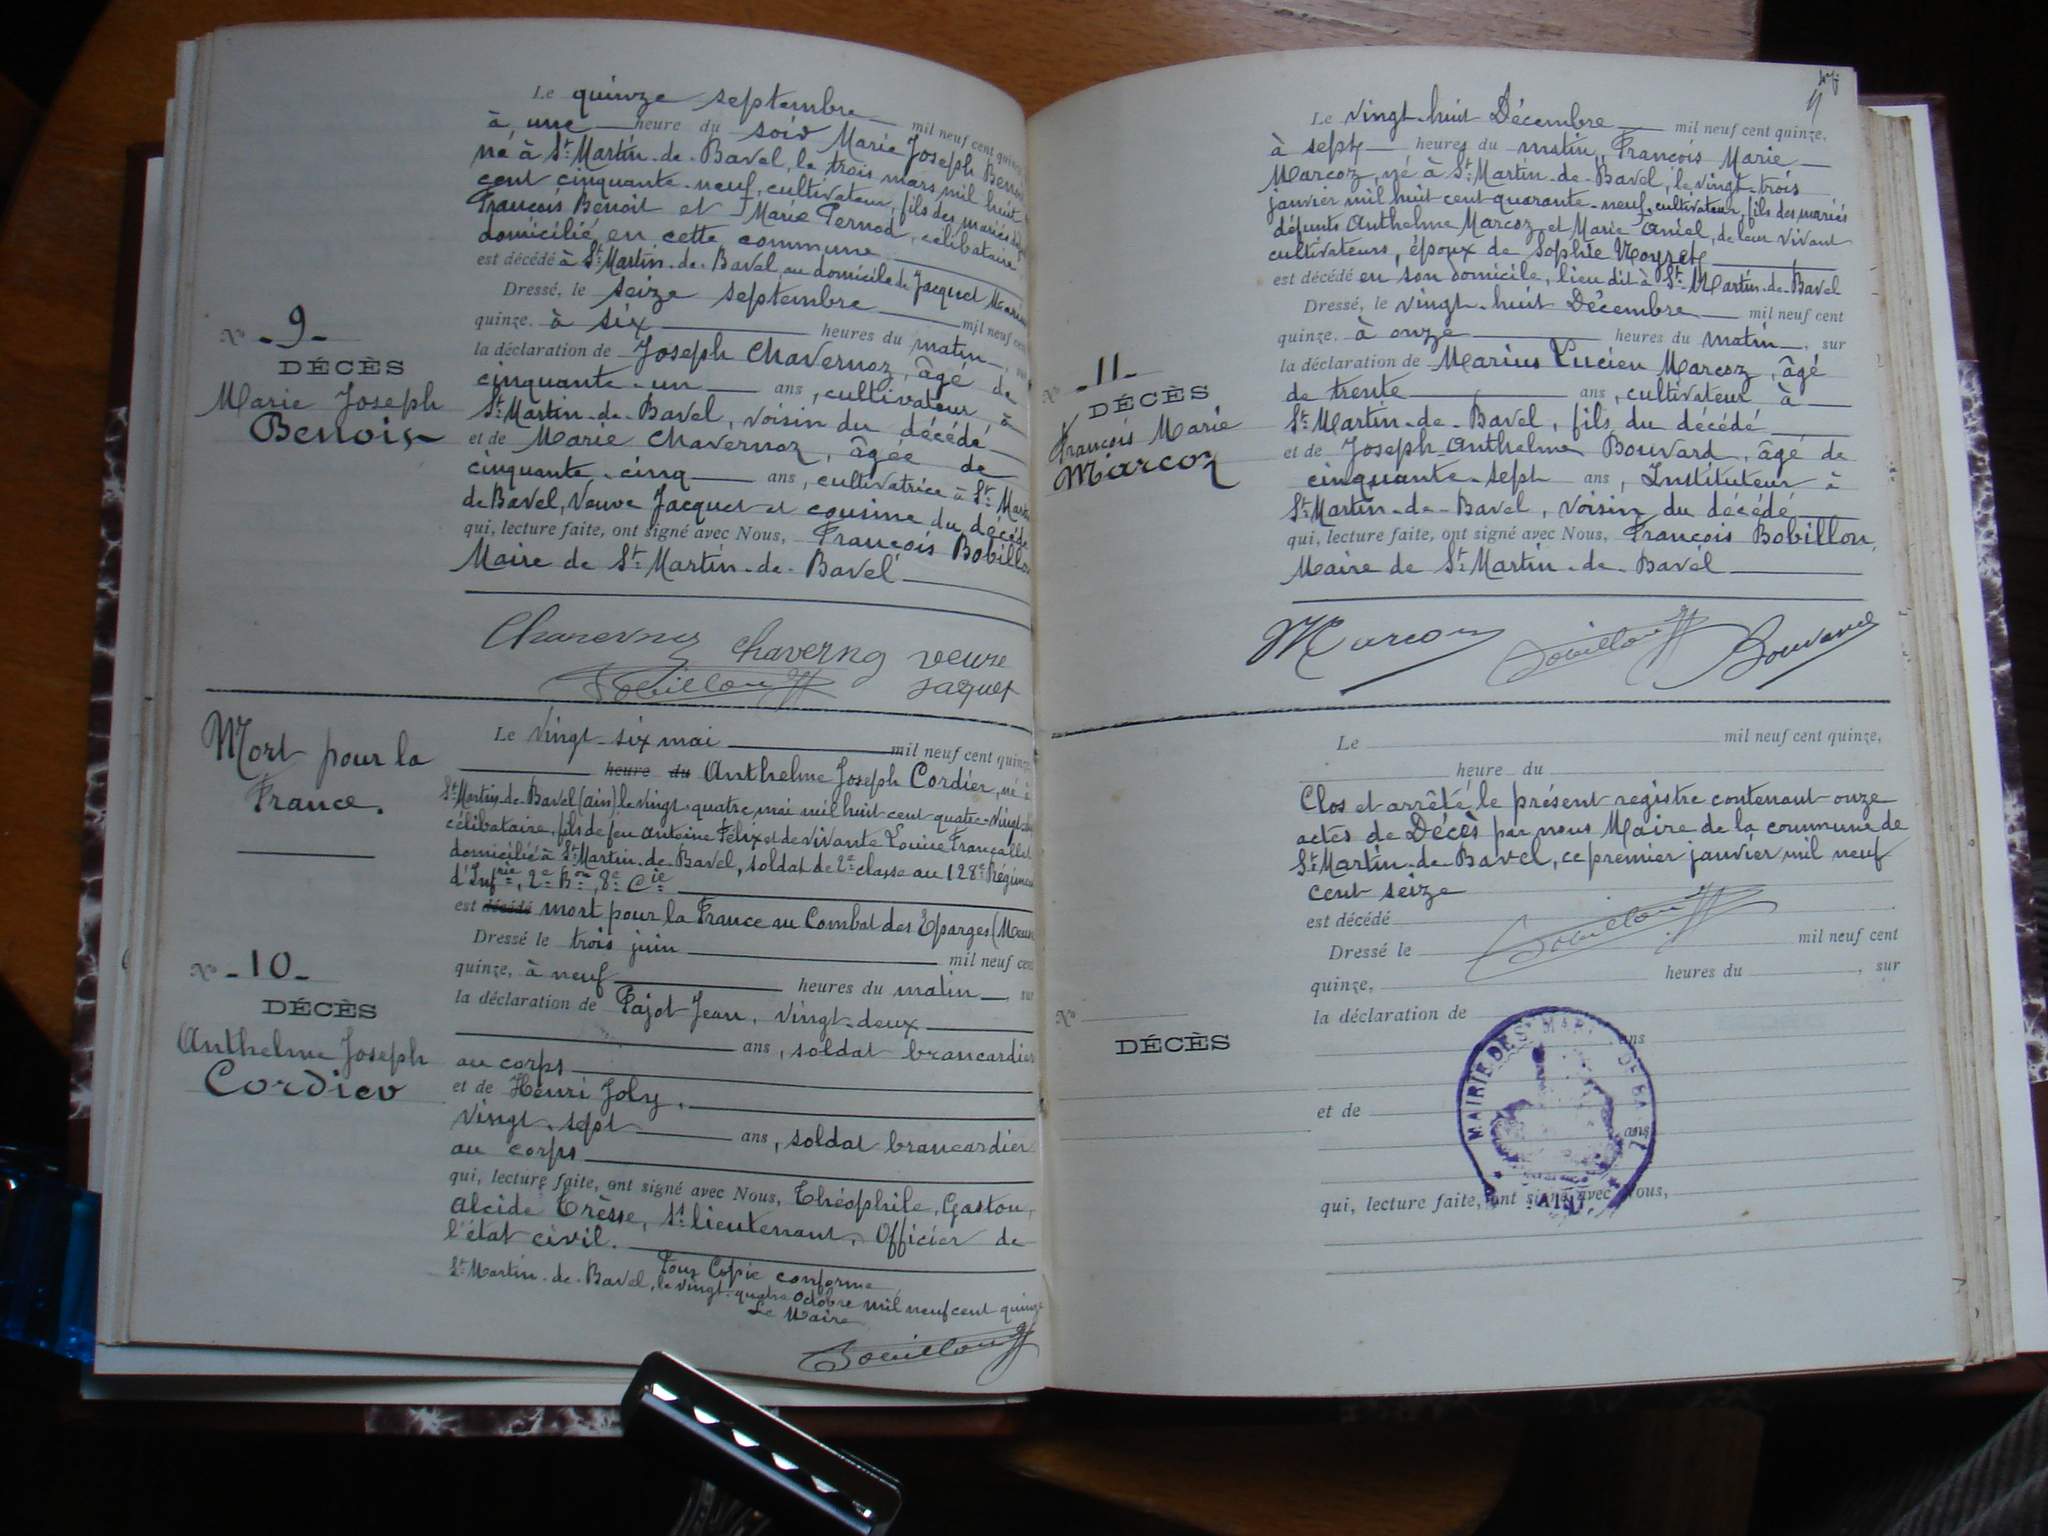 Le quinze septembre mil neuf cent quinze
à une heure du soir Marie Joseph Benoit
né à St Martin-de-Bavel, le trois mars mil huit
cent cinquante-neuf, cultivateur, fils des mariés
François Benoit et Marie Pernod, célibataire,
domicilié en cette commune
est décédé à St Martin-de-Bavel, au domicile de Jacquet
Dressé, le seize septembre mil neuf cent
quinze, à six heures du matin,
la déclaration de Joseph Chavernoz, âgé de
cinquante-un ans, cultivateur à
St Martin-de-Bavel, voisin du décédé
et de Marie Chavernoz, âgée de
cinquante-cinq ans, cultivatrice à St Martin
de Bavel, Veuve Jacquet et cousine du décédé
qui, lecture faite, ont signé avec Nous, François Bobillon
Maire de St Martin-de-Bavel
No -9-
DÉCÈS
Marie Joseph
Benoit
Chavernoz Chavernoz veuve
Jaquet
Bobillon
Mort pour la
France.
Le Vingt-six mai mil neuf cent quinze,
heure du Anthelme Joseph Cordier, né à
St Martin-de-Bavel (Ain) le vingt-quatre mai mil huit cent quatre-vingt
célibataire, fils de feu Antoine Félix et de vivante Louise Françallet
domicilié à St Martin-de-Bavel, soldat de 2e classe au 128e Régiment
d'Infrie, 2e Bon, 8e Cie
est décédé mort pour la France au Combat des Eparges (Meuse
Dressé le trois juin mil neuf cent
quinze, à neuf heures du matin, sur
la déclaration de Pajot Jean, vingt-deux
ans, soldat brancardier
au corps
et de Henri Joly,
vingt-sept ans, soldat brancardier
au corps
qui, lecture faite, ont signé avec Nous, Théophile, Gaston,
Alcide Trèsse, St lieutenant, Officier de
l'état civil.
Pour Copie conforme
St Martin-de-Bavel, le vingt-quatre Octobre mil neuf cent quinze
Le Maire
Bobillon
No -10-
DÉCÈS
Anthelme Joseph
Cordier
Le vingt-huit Décembre mil neuf cent quinze,
à sept heures du matin, François Marie
Marcoz, né à St Martin-de-Bavel, le vingt-trois
janvier mil huit cent quarante-neuf, cultivateur, fils des mariés
défunts Anthelme Marcoz et Marie Aniel, de leur vivant
cultivateurs, époux de Sophie Noyret
est décédé en son domicile, lieu dit à St Martin-de-Bavel
Dressé, le vingt-huit Décembre mil neuf cent
quinze, à onze heures du matin, sur
la déclaration de Marius Lucien Marcoz, âgé
de trente ans, cultivateur à
St Martin-de-Bavel, fils du décédé
et de Joseph-Anthelme Bouvard, âgé de
cinquante-sept ans, Instituteur à
St Martin-de-Bavel, voisin du décédé
qui, lecture faite, ont signé avec Nous, François Bobillon,
Maire de St Martin-de-Bavel
No -11-
DÉCÈS
François Marie
Marcoz
Marcoz Bobillon Bouvard
Le mil neuf cent quinze,
heure du
Clos et arrêté, le présent registre contenant onze
actes de Décès par nous Maire de la commune de
St Martin-de-Bavel, ce premier janvier mil neuf
cent seize
est décédé
Bobillon
Dressé le mil neuf cent
quinze, heures du , sur
la déclaration de
ans
et de
ans
qui, lecture faite, ont signé avec Nous,
No
DÉCÈS
MAIRIE DE ST MARTIN DE BAVEL
(AIN)